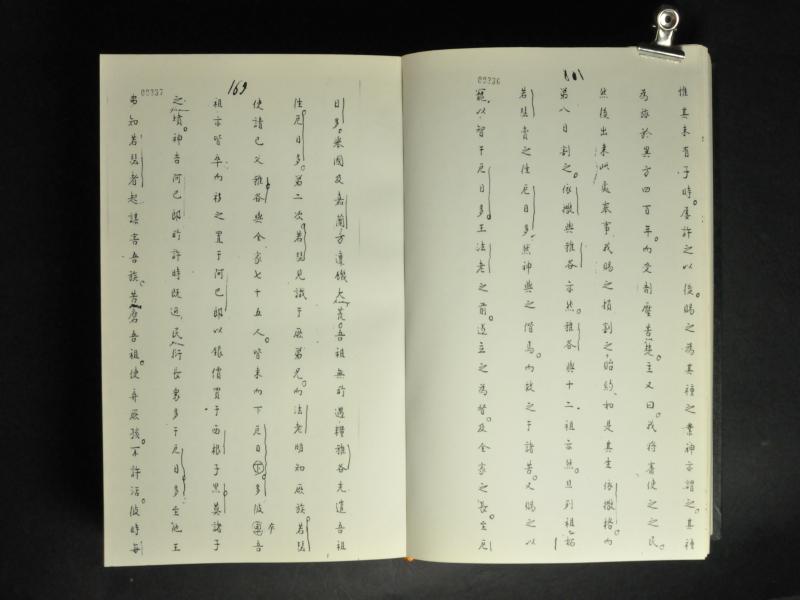 00336
惟其未有子時屢許之以後賜之為其種之業神亦謂之其種
為旅於異方四百年向受制壓苦楚主又曰我將審使之之民
然後出來此處奉事我賜之損割之貽約如是其生依撒格向
第八日割之依撒與雅各亦然雅各與十二祖亦然且列祖妬
若瑟賣之徃厄日多然神與之偕焉向救之于諸苦又賜之以
寵以智于厄日多王法老之前遂立之為督及全家之長至厄
00337
169
日多舉國及嘉蘭方遭饑大荒吾祖無所遇糧雅各先遣吾祖
徃厄日多第二次若瑟見識于厥弟兄向法老明知厥族若瑟
使請己父雅各與全家七十五人皆来向下厄日多彼與吾
祖亦皆卒向移之置于河巳郎以銀價買于西根子黑莫諸子
之墳神吉阿巳郎所許時既迩民衍長多于厄日多至他王
弗知若瑟者起謀害吾族苦磨吾祖使弃厥孩不許活彼時每